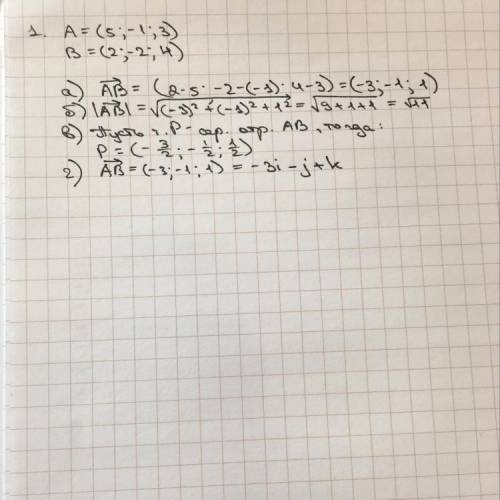 1. A = (5; -1; 3)
B = (2; -2; 4)
а) AB = (2-5; -2-(-1); 4-3) = (-3; -1; 1)
б) |AB| = √(-3)² + (-1)² + 1² = √9+1+1 = √11
в) Пусть т. P - сер. отр. AB, тогда:
P = (-3/2; -1/2; 1/2)
г) AB = (-3; -1; 1) = -3i - j + k